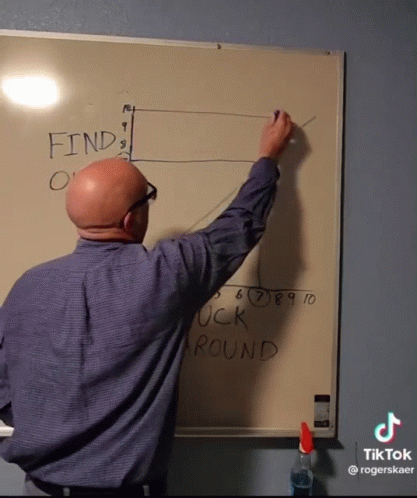 10
9
8
FIND
O
5 6 7 8 9 10
UCK
AROUND
TikTok
@rogerskaer